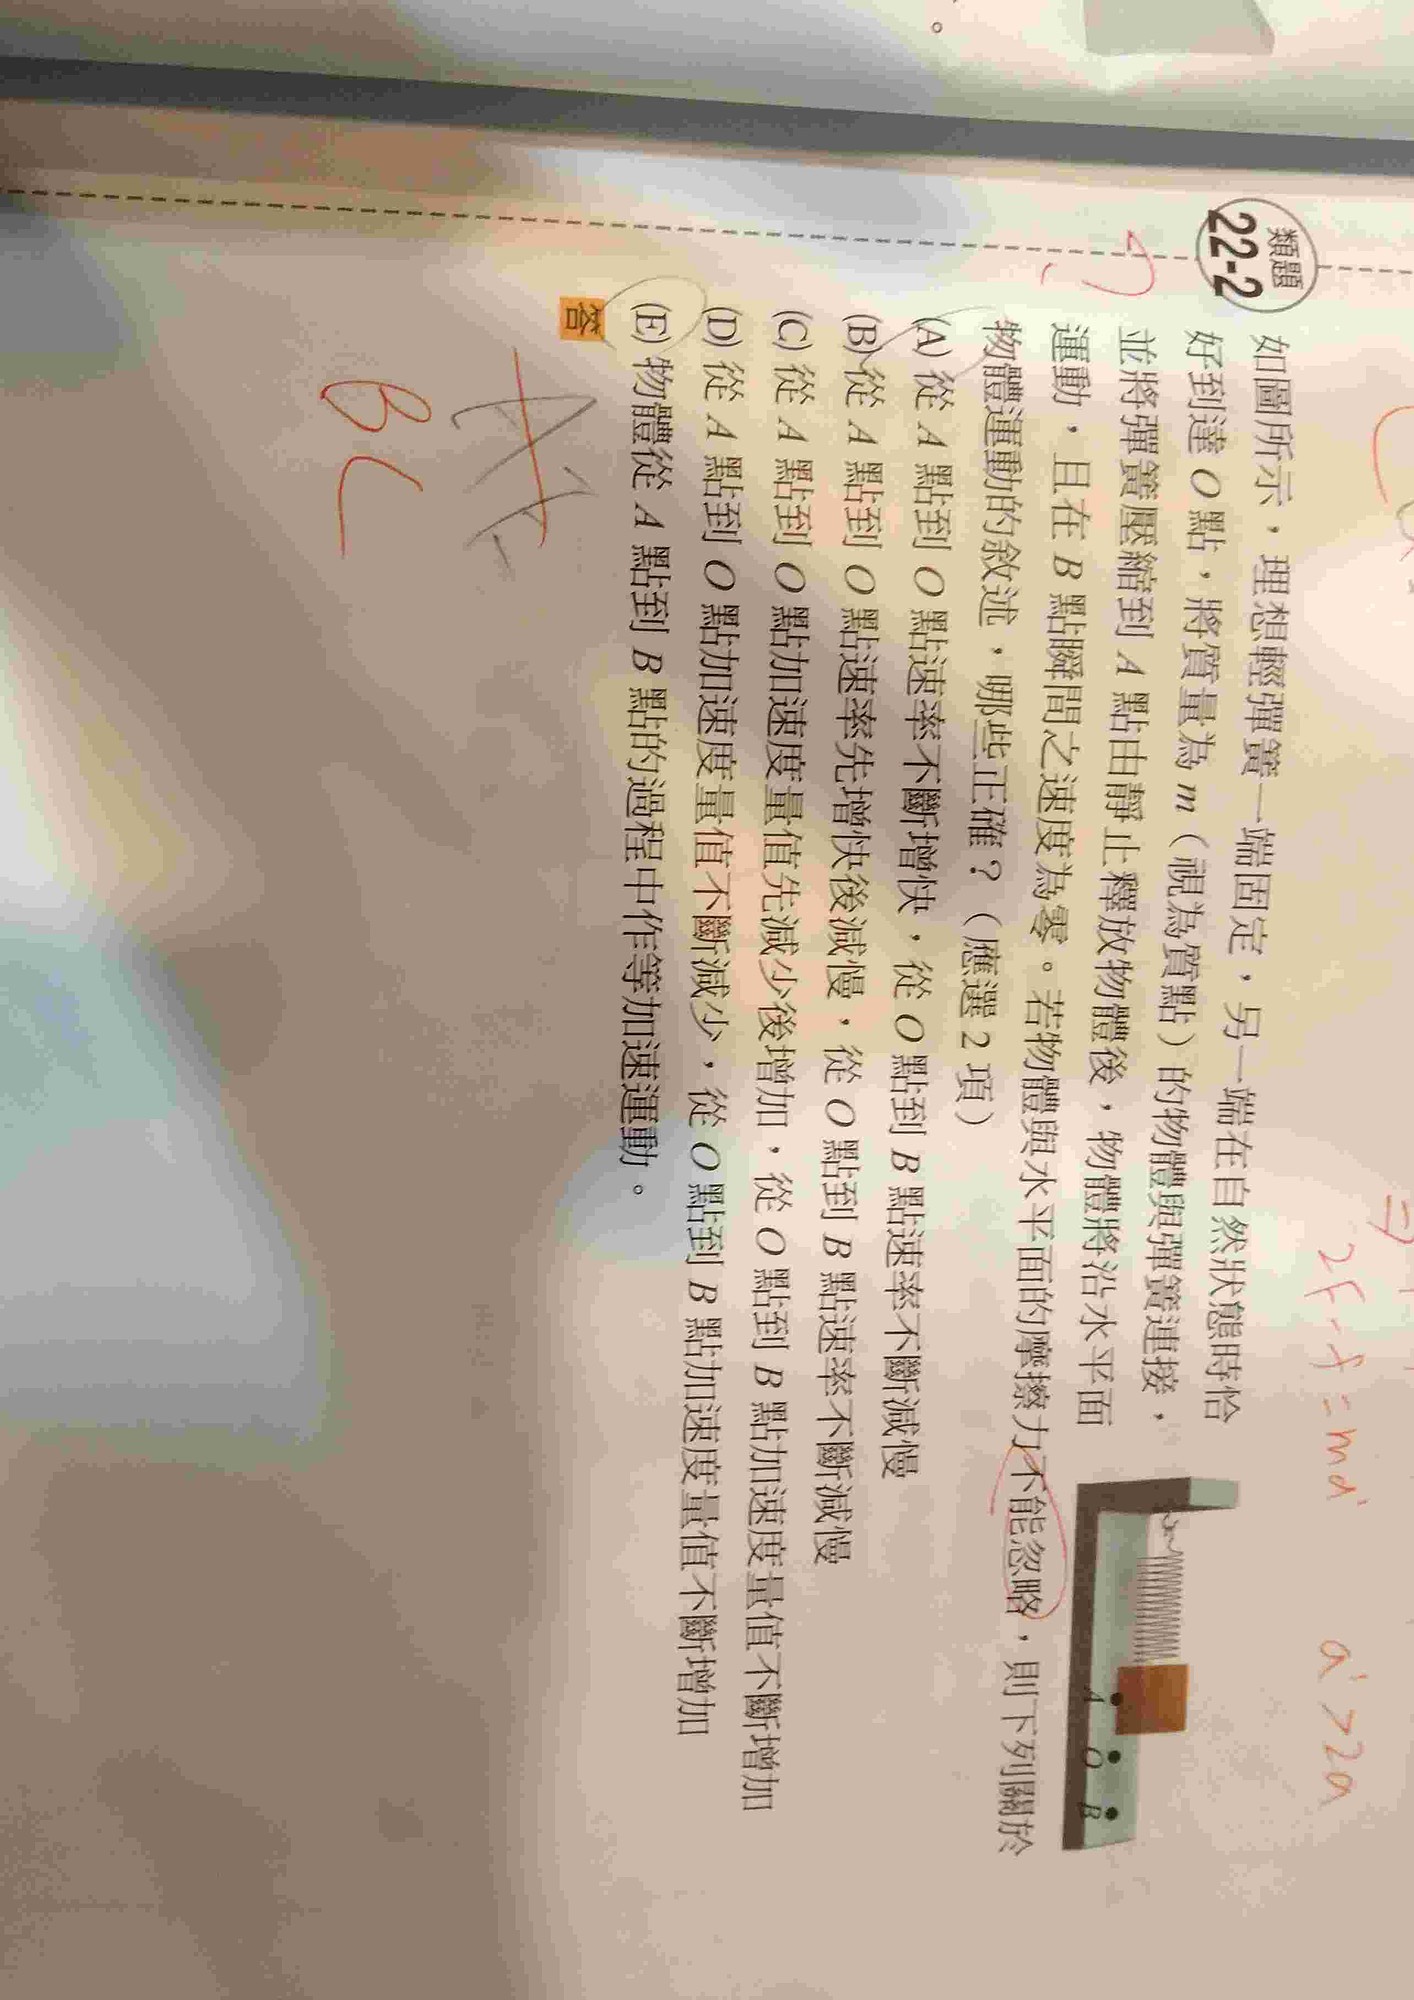 類題
22-2
如圖所示，理想輕彈簧一端固定，另一端在自然狀態時恰
好到達 O 點，將質量為 m（視為質點）的物體與彈簧連接，
並將彈簧壓縮到 A 點由靜止釋放物體後，物體將沿水平面
運動，且在 B 點瞬間之速度為零。若物體與水平面的摩擦力不能忽略，則下列關於
物體運動的敘述，哪些正確？（應選 2 項）
(A) 從 A 點到 O 點速率不斷增快，從 O 點到 B 點速率不斷減慢
(B) 從 A 點到 O 點速率先增快後減慢，從 O 點到 B 點速率不斷減慢
(C) 從 A 點到 O 點加速度量值先減少後增加，從 O 點到 B 點加速度量值不斷增加
(D) 從 A 點到 O 點加速度量值不斷減少，從 O 點到 B 點加速度量值不斷增加
(E) 物體從 A 點到 B 點的過程中作等加速運動。
答
BC
A O B
2F-f=ma'
a'>2a